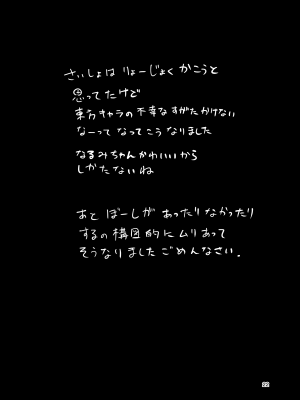 さいしょは りょーじょく かこうと
思ってたけど
東方キャラの不幸なすがたかけない
なーって なってこう なりました
なるみちゃんかわいいから
しかたないね
あと ぼーしが あったりなかったり
するの 構図的に ムリあって
そうなりました ごめんなさい。
22